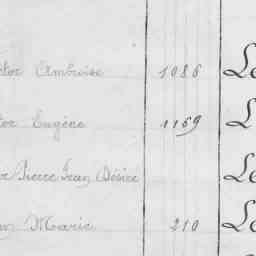 Ambroise 1086 Le
Eugène 1169 L
Pierre Jean Désiré Le
Marie 210 Le